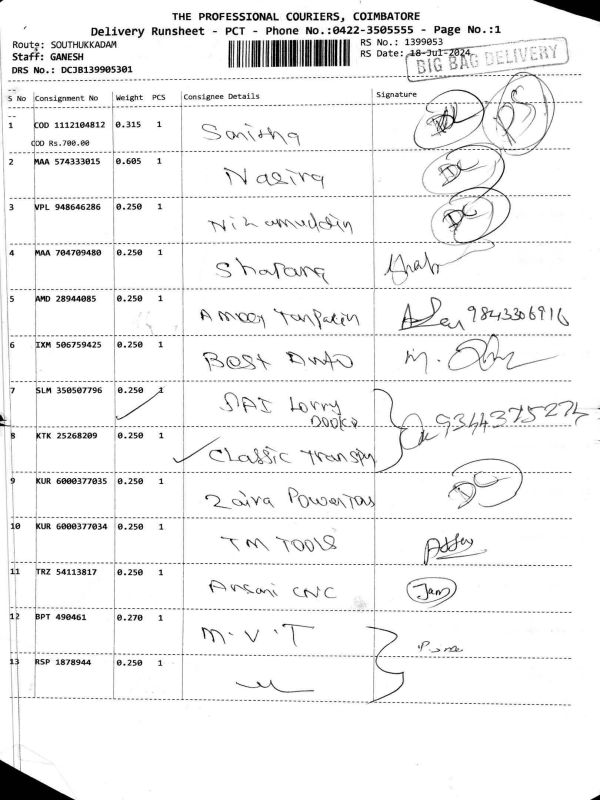 THE PROFESSIONAL COURIERS, COIMBATORE
Delivery Runsheet - PCT - Phone No.:0422-3505555 - Page No.:1
Route: SOUTHUKKADAM RS No.: 1399053
Staff: GANESH RS Date: 18-Jul-2024
DRS No.: DCJB139905301 BIG BAG DELIVERY
S No Consignment No Weight PCS Consignee Details Signature
1 COD 1112104812 0.315 1
COD Rs.700.00
2 MAA 574333015 0.605 1 Nasira DC
3 VPL 948646286 0.250 1 Nizamuddin DC
4 MAA 704709480 0.250 1
5 AMD 28944085 0.250 1 Ameer 9843306916
6 IXM 506759425 0.250 1 Best Auto
7 SLM 350507796 0.250 1 SAI Lorry
9344375274
8 KTK 25268209 0.250 1 Classic
9 KUR 6000377035 0.250 1 Zaira DC
10 KUR 6000377034 0.250 1 TM TOOLS
11 TRZ 54113817 0.250 1 Ansari CNC Jam
12 BPT 490461 0.270 1 M.V.T
13 RSP 1878944 0.250 1